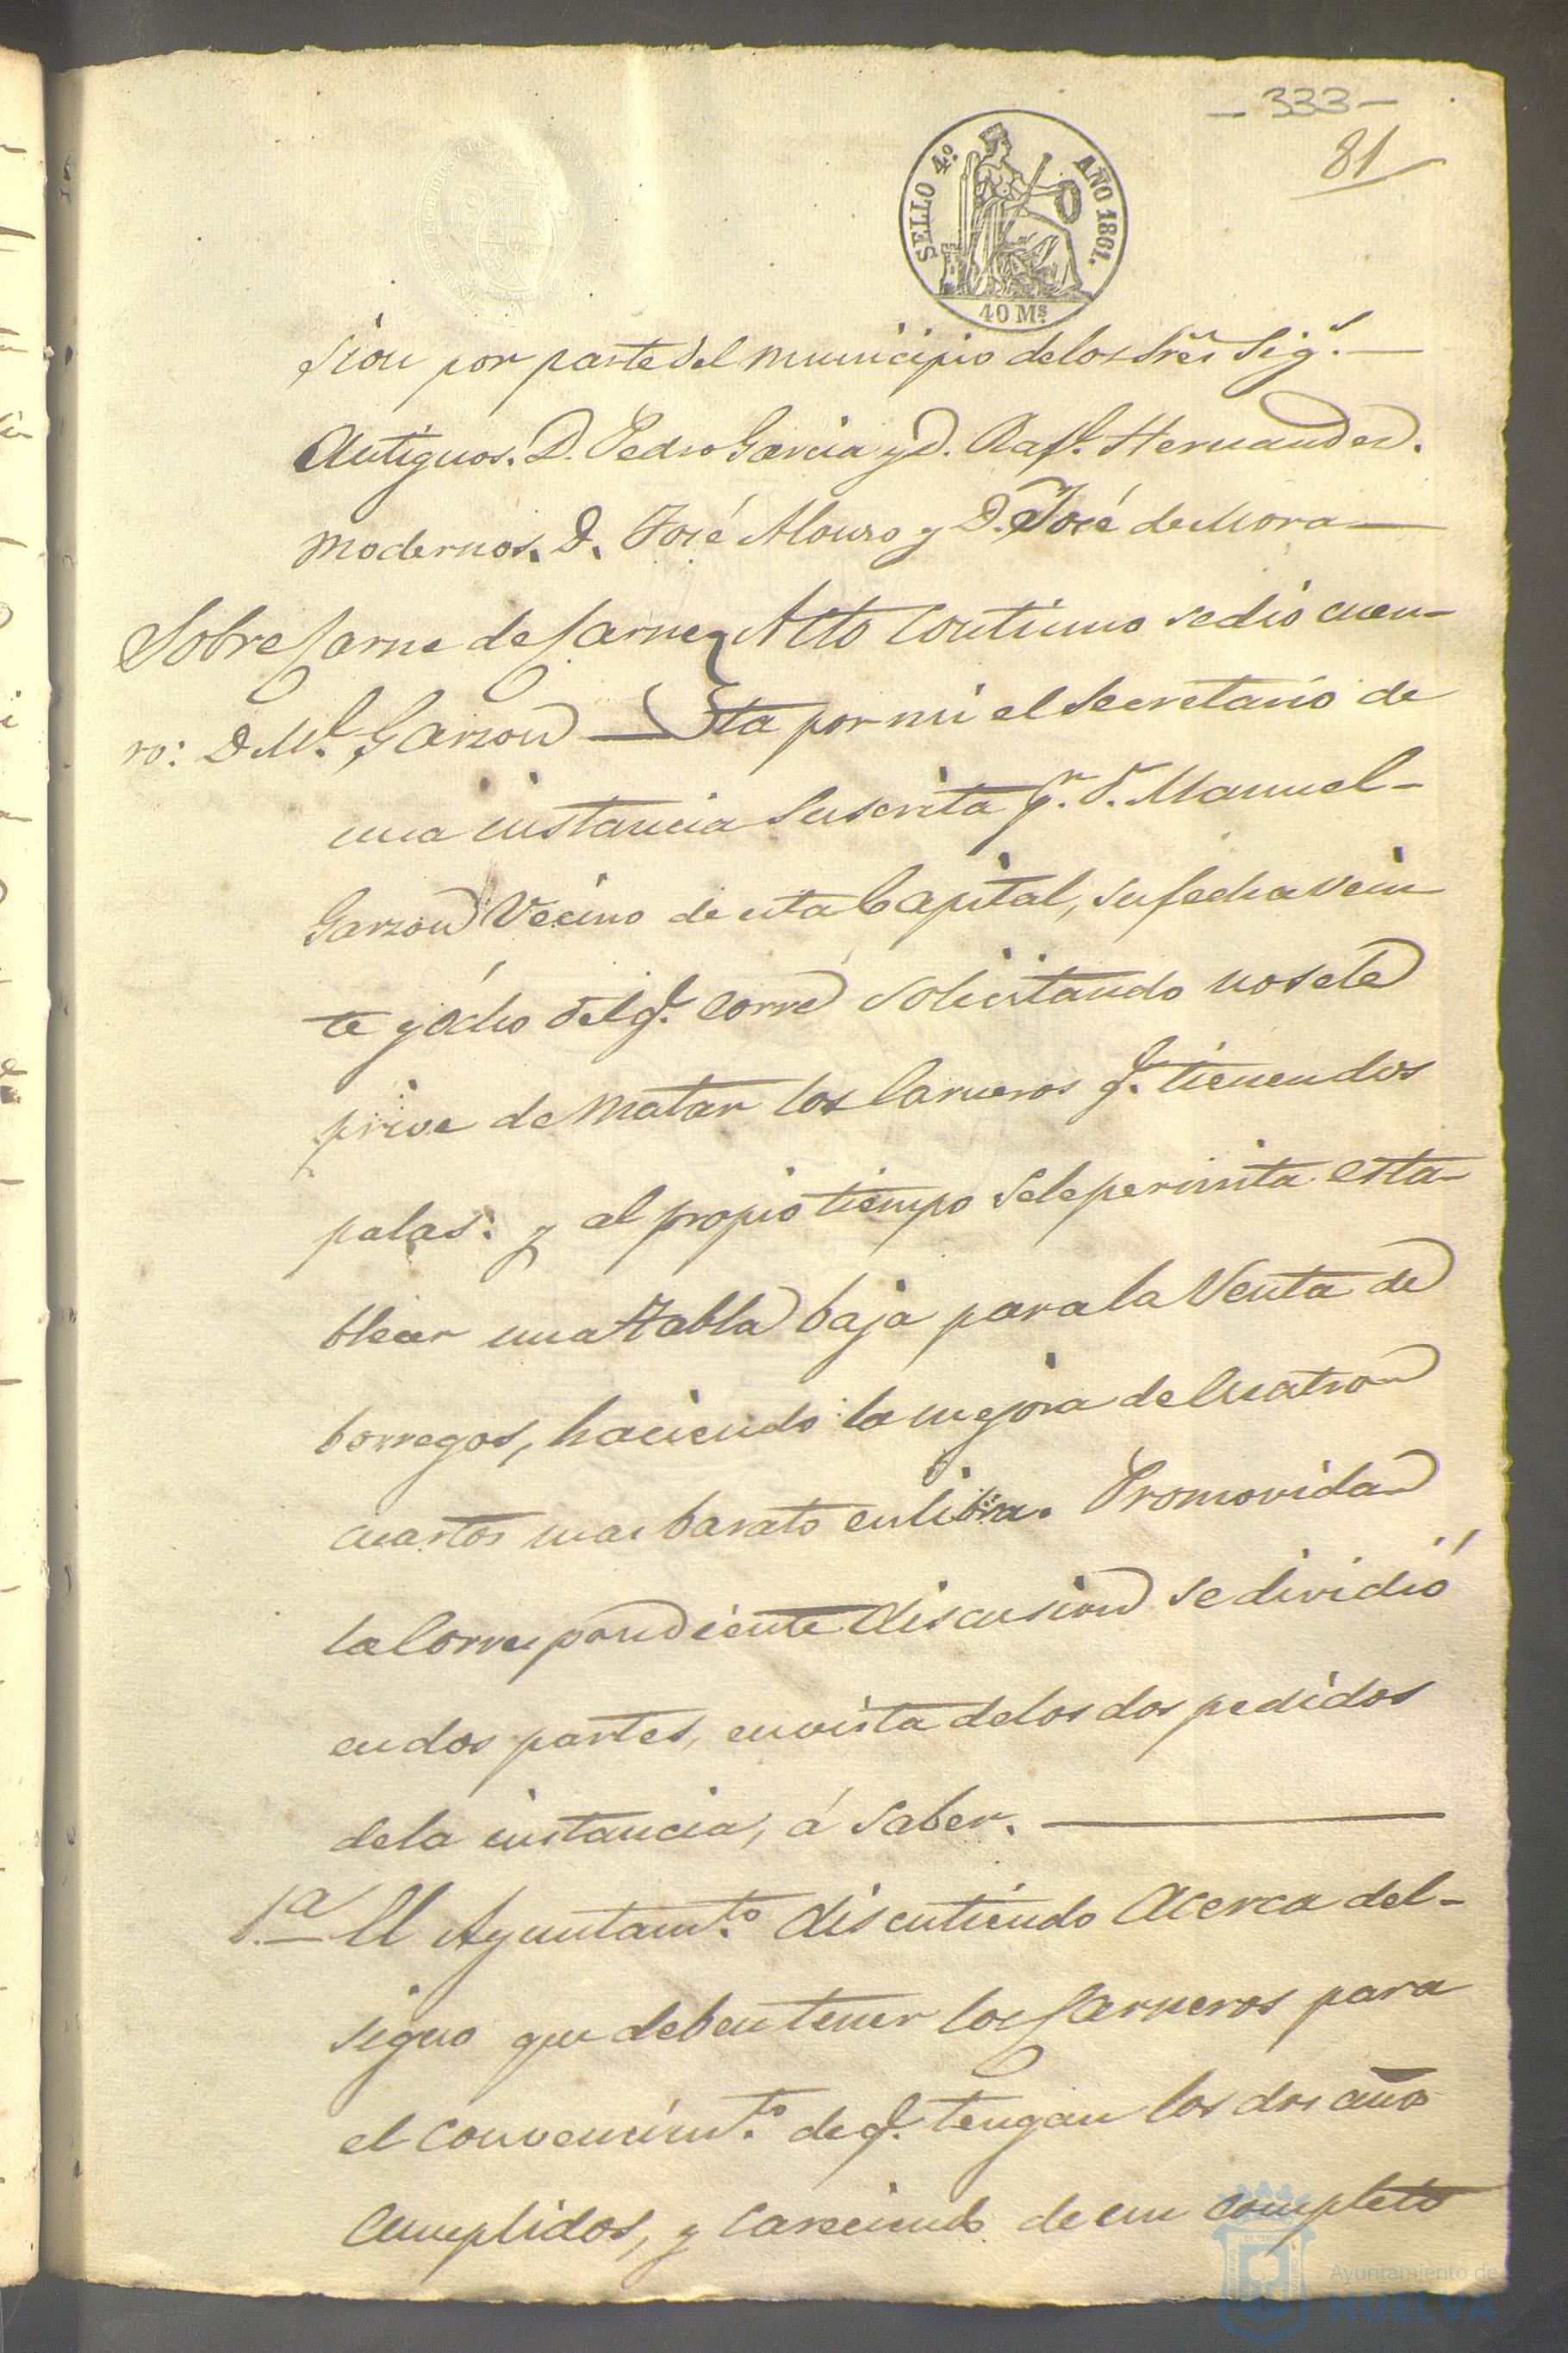 - 333 -
81
SELLO 4º AÑO 1861.
40 Ms.
sion por parte del municipio de los Sres. Sigs. —
Antiguos. D. Pedro Garcia y D. Rafl. Hernandez.
Modernos. D. José Alonso y D. José de Mora —
Sobre Carne de Carne-
ro: D Ml. Garzon —
Acto continuo se dió cuen-
ta por mi el Secretario de
una instancia suscrita pr. D. Manuel
Garzon Vecino de esta Capital, su fecha vein
te y ócho del q. corre solicitando no se le
prive de matar los Carneros q. tienen dos
palas: y al propio tiempo se le permita esta-
blecer una tabla baja para la Venta de
borregos, haciendo la mejora de Cuatro
cuartos mas barato en libra. Promovida
la Correspondiente discusion se dividió
en dos partes, en vista de los dos pedidos
de la instancia, á saber. —
1.ª — El Ayuntamto. discutiendo acerca del-
signo que deben tener los Carneros para
el convencimto. de q. tengan los dos años
cumplidos, y careciendo de un completo
Ayuntamiento de
HUELVA